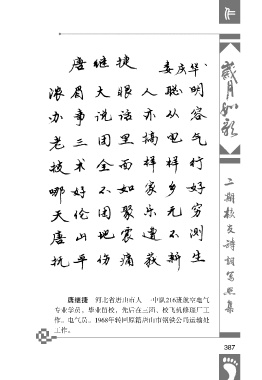 作
唐继捷 娄庆华
浓眉大眼人聪明
办事说话亦从容
老三团里搞电气
技术全面样样行
哪好不如家乡好
天伦团聚乐无穷
唐山地震遭不测
抗平伤痛获新生
岁月如歌
二期校友诗词写照集
唐继捷 河北省唐山市人 一中队216班航空电气专业学员。毕业留校，先后在三团、校飞机修理厂工作。电气员。1968年转回原籍唐山市钢铁公司运输处工作。
387